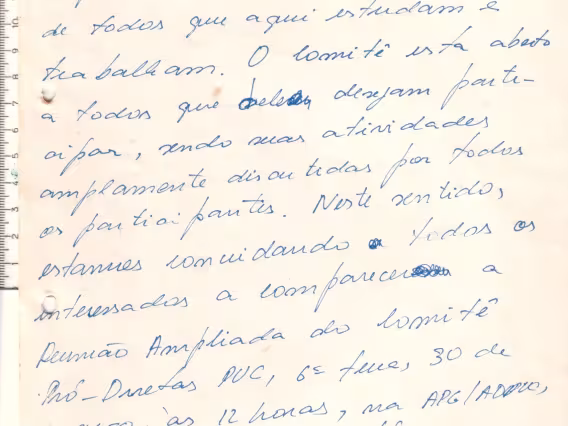 de todos que aqui estudam e
trabalham. O Comitê está aberto
a todos que dele desejam parti-
cipar, sendo suas atividades
amplamente discutidas por todos
os participantes. Neste sentido,
estamos convidando a todos os
interessados a comparecer a
Reunião Ampliada do Comitê
Pró-Diretas PUC, 6ª feira, 30 de
às 12 horas, na APG/